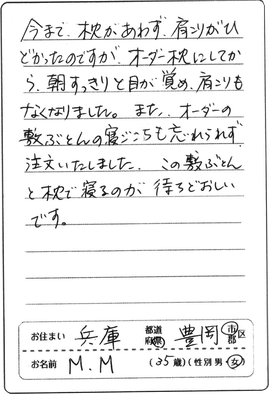 今まで、枕があわず、肩こりがひ
どかったのですが、オーダー枕にしてか
ら、朝すっきりと目が覚め、肩こりも
なくなりました。また、オーダーの
敷ぶとんの寝ごこちも忘れられず、
注文いたしました。この敷ぶとん
と枕で寝るのが待ちどおしい
です。
お住まい 兵庫 都道府県 豊岡 市郡区
お名前 M.M (35歳)(性別 男・女)